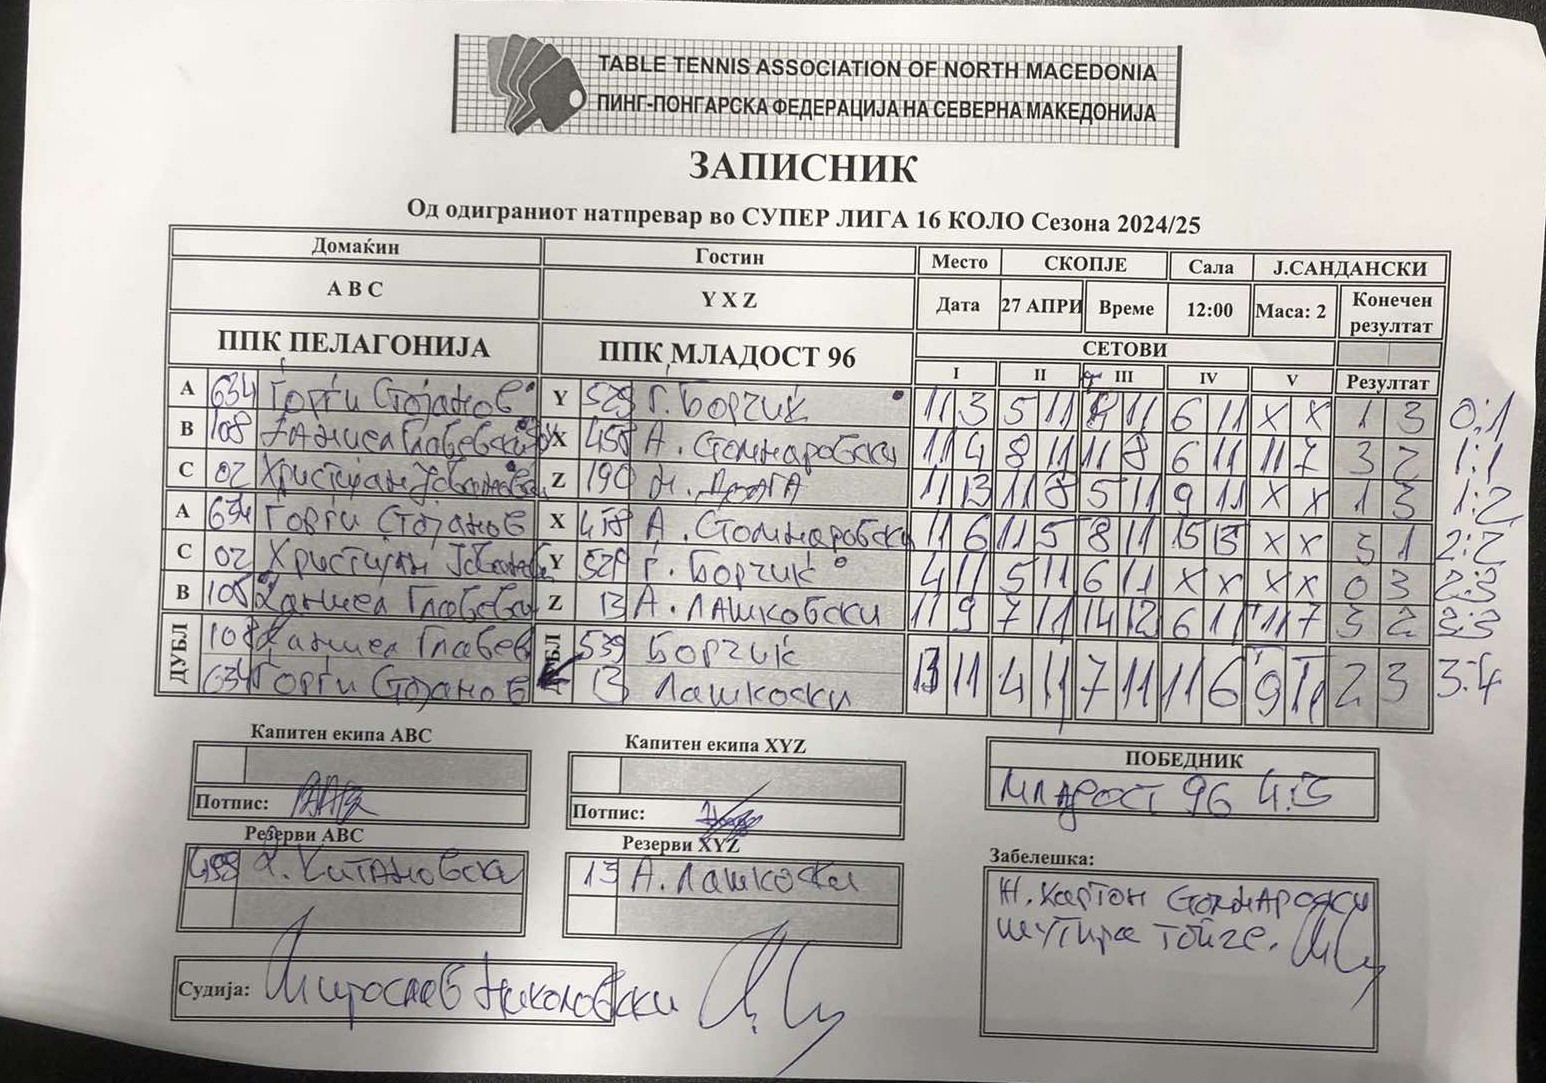 TABLE TENNIS ASSOCIATION OF NORTH MACEDONIA
ПИНГ-ПОНГАРСКА ФЕДЕРАЦИЈА НА СЕВЕРНА МАКЕДОНИЈА
ЗАПИСНИК
Од одиграниот натпревар во СУПЕР ЛИГА 16 КОЛО Сезона 2024/25
Домаќин Гостин Место СКОПЈЕ Сала Ј.САНДАНСКИ
A B C Y X Z Дата 27 АПРИ Време 12:00 Маса: 2 Конечен резултат
ППК ПЕЛАГОНИЈА ППК МЛАДОСТ 96 СЕТОВИ
I II III IV V Резултат
A 634 Ѓорѓи Стојанов Y 529 Г. Борчиќ 11 3 5 11 8 11 6 11 X X 1 3 0:1
B 108 Даниел Главевски X 458 А. Столнаровски 11 4 8 11 11 8 6 11 11 7 3 2 1:1
C 02 Христијан Z 190 11 13 11 8 5 11 9 11 X X 1 3 1:2
A 634 Ѓорѓи Стојанов X 458 А. Столнаровски 11 6 11 5 8 11 15 13 X X 3 1 2:2
C 02 Христијан Y 529 Г. Борчиќ 4 11 5 11 6 11 X X X X 0 3 2:3
B 108 Даниел Главевски Z 13 А. Лашковски 11 9 7 11 14 12 6 11 11 7 3 2 3:3
ДУБЛ 108 Даниел Главев 539 Борчиќ 13 11 4 11 7 11 11 6 9 11 2 3 3:4
634 Ѓорѓи Стојанов 13 Лашкоски
Капитен екипа ABC Капитен екипа XYZ ПОБЕДНИК
Младост 96 4:3
Потпис: Потпис:
Резерви ABC Резерви XYZ Забелешка:
Китановски 13 А. Лашкоски
Ж. Картон Столнаровски
шутира топче.
Судија: Мирослав Николовски